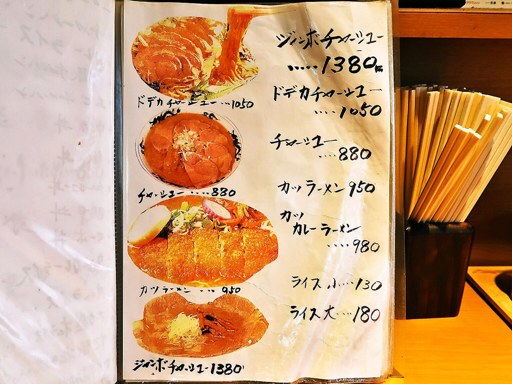 ジャンボチャーシュー
‥‥‥1380
ドデカチャーシュー
‥‥1050
チャーシュー
‥‥880
カツラーメン950
カツ
カレーラーメン
‥‥‥980
ライス小‥‥130
ライス大‥‥180
ドデカチャーシュー‥‥1050
チャーシュー‥‥‥880
カツラーメン‥‥950
ジャンボチャーシュー1380